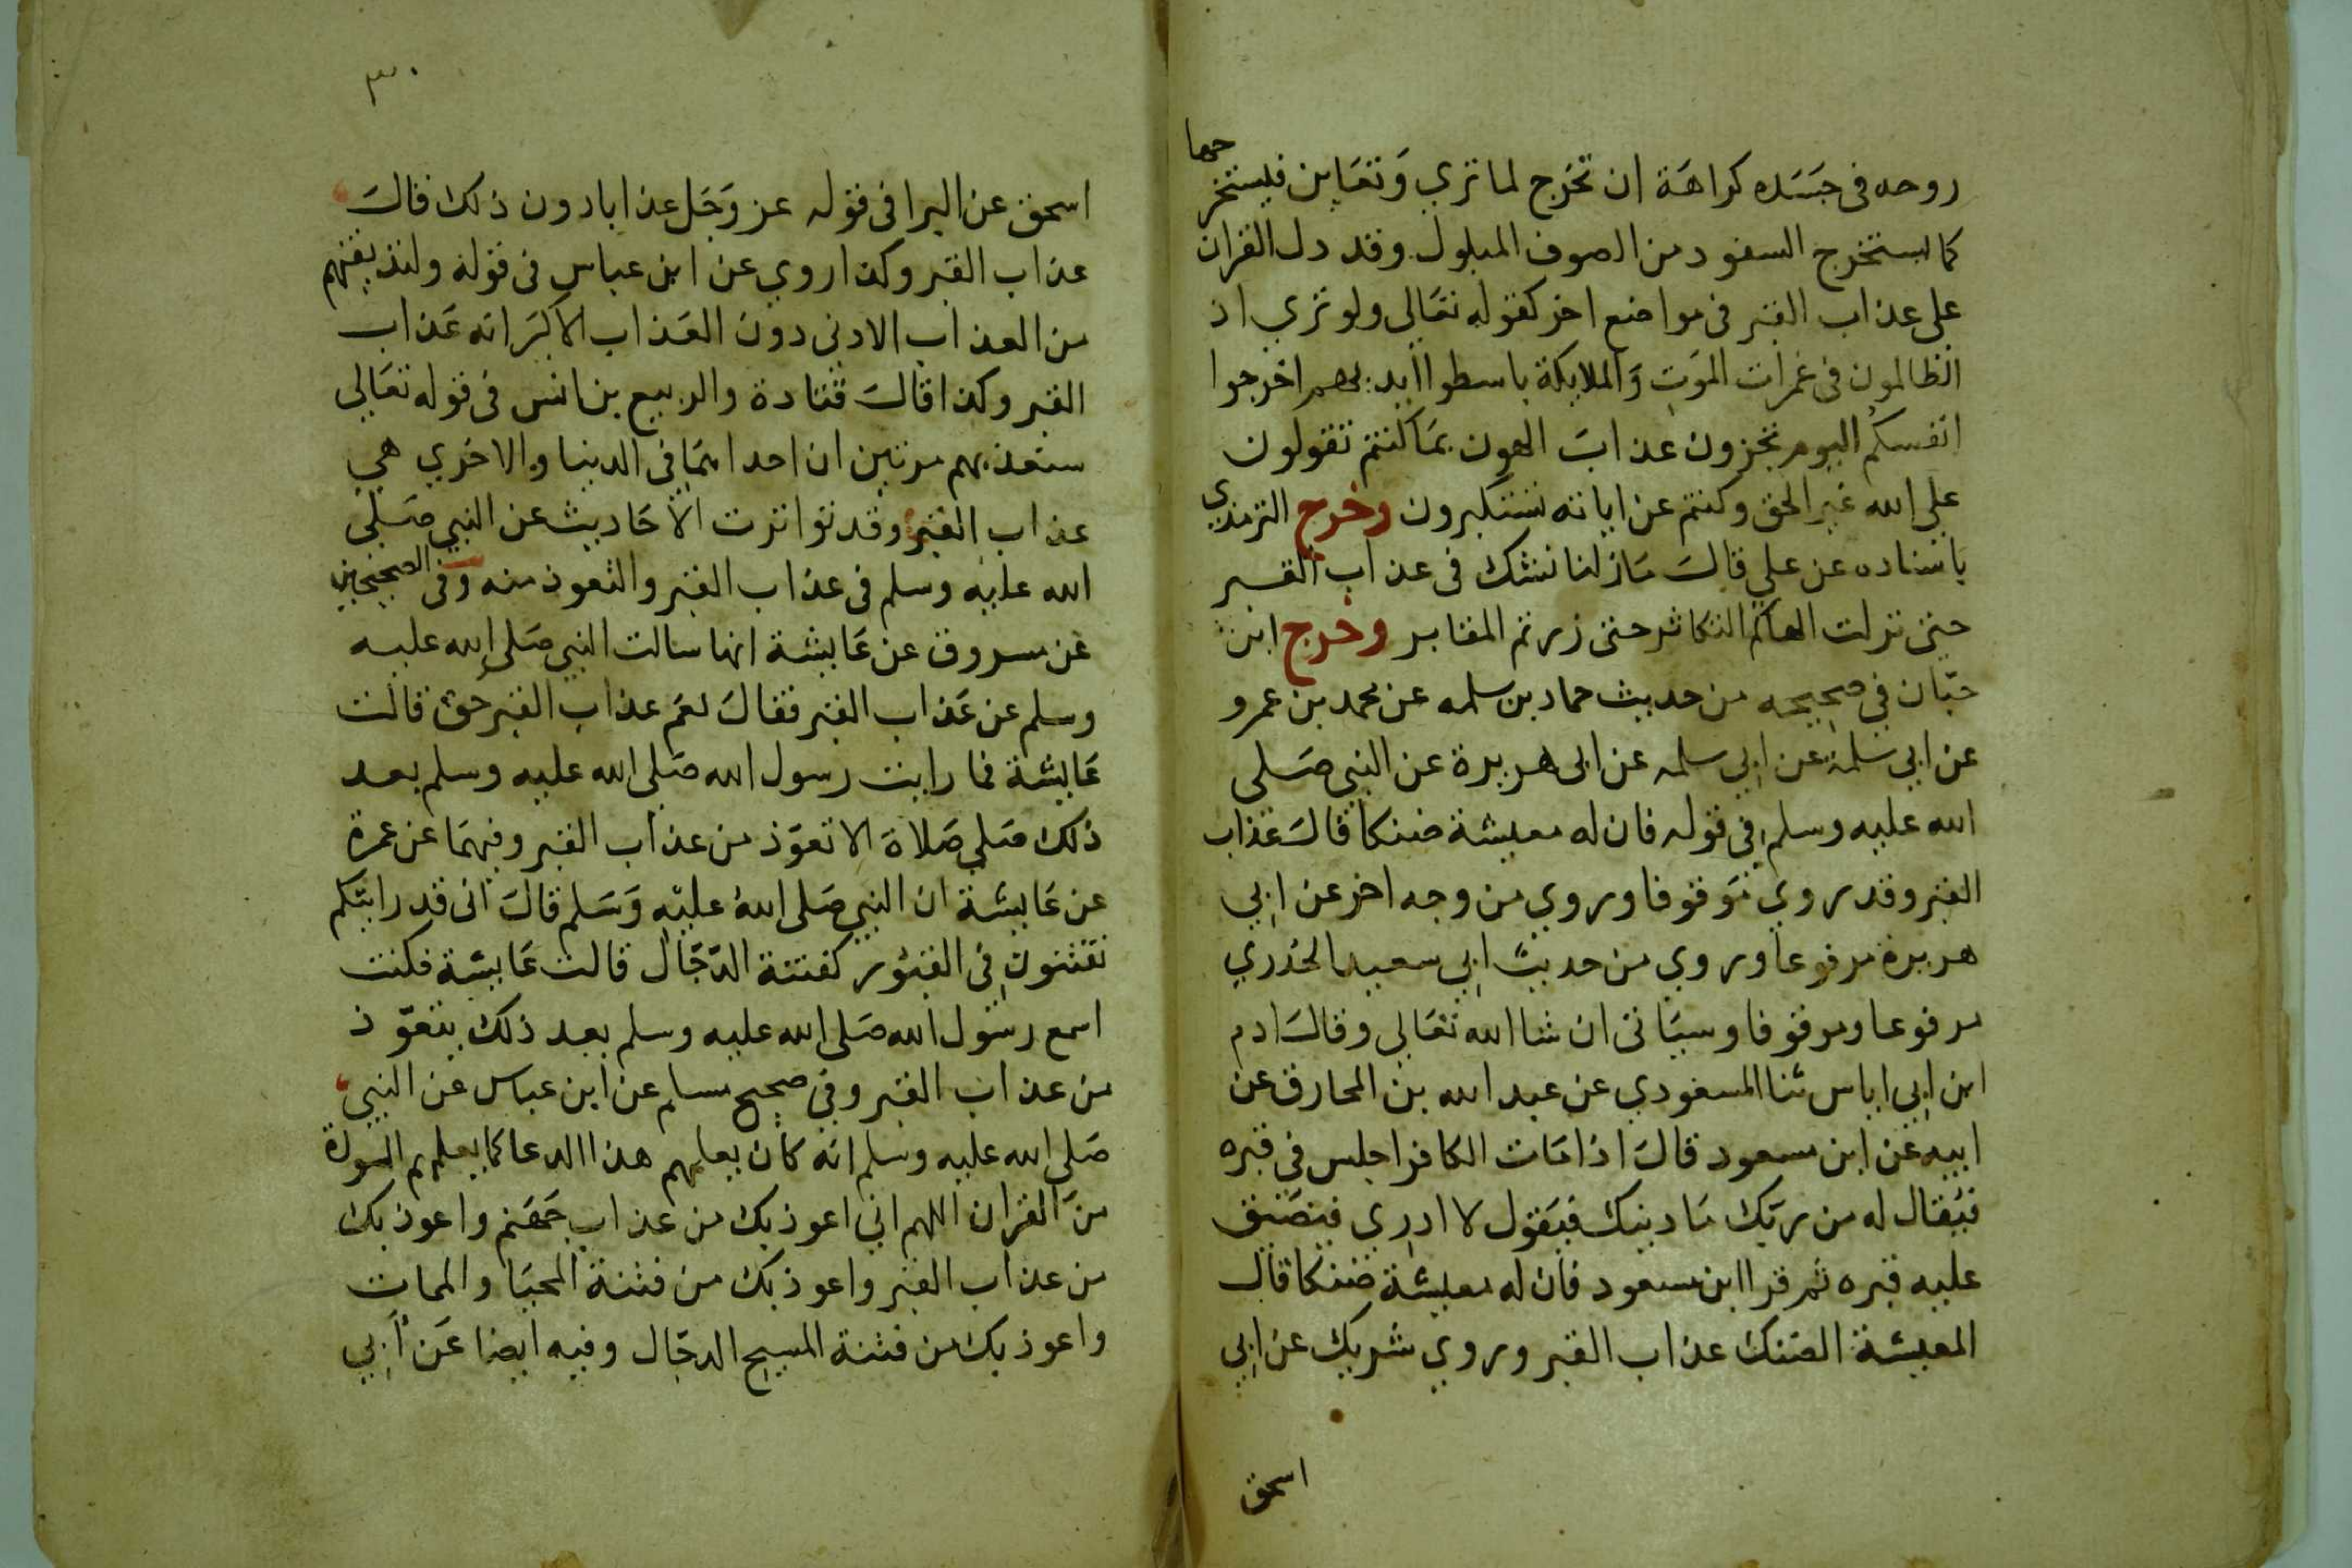 روحه في جسَده كراهَة ان تخرج لما تري وَتعَاين فيستخر
جها
كما يستخرج السفود من الصوف المبلول وقد دل القران
علي عذاب القبر في مواضع اخر كقوله تعَالي ولو تري اذ
الظالمون في غمرات الموَت وَالملايكة باسطوا ايديهم اخرجوا
انفسكم اليوم تجزون عذابَ الهون بمَا كنتم تقولون
علي الله غير الحق وكنتم عن اياته تستكبرون وخرج الترمذي
باسناده عن علي قالَ مَا زلنا نشك في عذاب القبر
حتي نزلت الهاكم التكاثر حتي زرتم المقابر وخرج ابن
حبّان في صحيحه من حديث حماد بن سلمه عن محمد بن عمرو
عن ابي سلمة عن ابي سلمه عن ابي هريرة عن النبي صَلي
الله عليه وسلم في قوله فان له معيشة ضنكا قالَ عذاب
القبر وقد روي موَقوفا وروي من وجه اخر عن ابي
هريرة مرفوعا وروي من حديث ابي سعيد الخدري
مرفوعا وموقوفا وسيَاتي ان شا الله تعَالي وقالَ ادم
ابن ابي اياس ثنا المسعودي عن عبد الله بن المخارق عن
ابيه عن ابن مسعود قالَ اذا مَات الكافر اجلس في قبره
فيُقال له من ربّك مَا دينك فيَقول لا ادري فيضَيق
عليه قبره ثم قرا ابن مسعود فان له معيشة ضنكا قال
المعيشة الضنك عذاب القبر وروي شريك عن ابي
اسحق
٣٠
اسحق عن البرا في قوله عز وَجَل عذابا دون ذلك قالَ
عذاب القبر وكذا روي عن ابن عباس في قوله ولنذيقنهم
من العذاب الادني دون العَذاب الاكبرَ انه عَذاب
القبر وكذا قالَ قتادة والربيع بن انس في قوله تعَالي
سنعذبهم مرتين ان احداهمَا في الدينا والاخَري هي
عذاب القبر وقد تواترت الاحَاديث عن النبي صَلي
الله عليه وسلم في عذاب القبر والتعوذ منه وفي الصحيحين
عَن مسروق عن عَايشة انها سالت النبي صَلي الله عليه
وسلم عن عَذاب القبر فقالَ نعَم عذاب القبر حق قالت
عَايشة فما رايت رسول الله صَلي الله عليه وسلم بعد
ذلك صَلي صَلاةَ الا تعوّذ من عذاب القبر وفيهمَا عن عمرة
عن عَايشة ان النبي صَلي اللهُ عليْه وَسَلم قالَ اني قد رايتكم
تفتنون في القبُور كفتنة الدّجّال قالت عَايشة فكنت
اسمع رسَول الله صَلي الله عليه وسلم بعد ذلك يتعوّذ
من عذاب القبر وفي صحيح مسلم عن ابن عباس عن النبي
صَلي الله عليه وسلم انه كان يعلمهم هذا الدعا كما يعلمهم السورة
منَ القران اللهم اني اعوذ بك من عذاب جَهنم واعوذ بك
من عذاب القبر واعوذ بك من فتنة المحيَا والممات
واعوذ بك من فتنة المسيح الدجّال وفيه ايضا عَن ابي